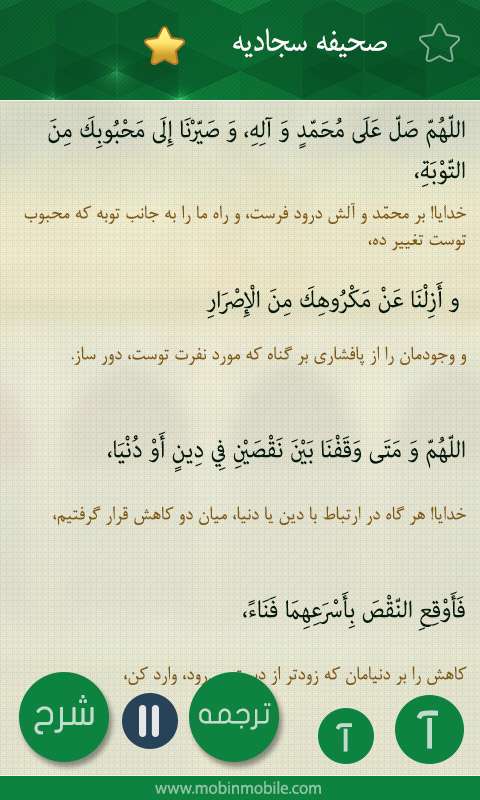 صحیفه سجادیه
اللّهُمّ صَلّ عَلَى مُحَمّدٍ وَ آلِهِ، وَ صَيّرْنَا إِلَى مَحْبُوبِكَ مِنَ
التّوْبَةِ،
خدایا! بر محمّد و آلش درود فرست، و راه ما را به جانب توبه که محبوب
توست تغییر ده،
و أَزِلْنَا عَنْ مَكْرُوهِكَ مِنَ الْإِصْرَارِ
و وجودمان را از پافشاری بر گناه که مورد نفرت توست، دور ساز.
اللّهُمّ وَ مَتَى وَقَفْنَا بَيْنَ نَقْصَيْنِ فِي دِينٍ أَوْ دُنْيَا،
خدایا! هر گاه در ارتباط با دین یا دنیا، میان دو کاهش قرار گرفتیم،
فَأَوْقِعِ النّقْصَ بِأَسْرَعِهِمَا فَنَاءً،
کاهش را بر دنیامان که زودتر از رود، وارد کن،
آ
آ
ترجمه
شرح
www.mobinmobile.com